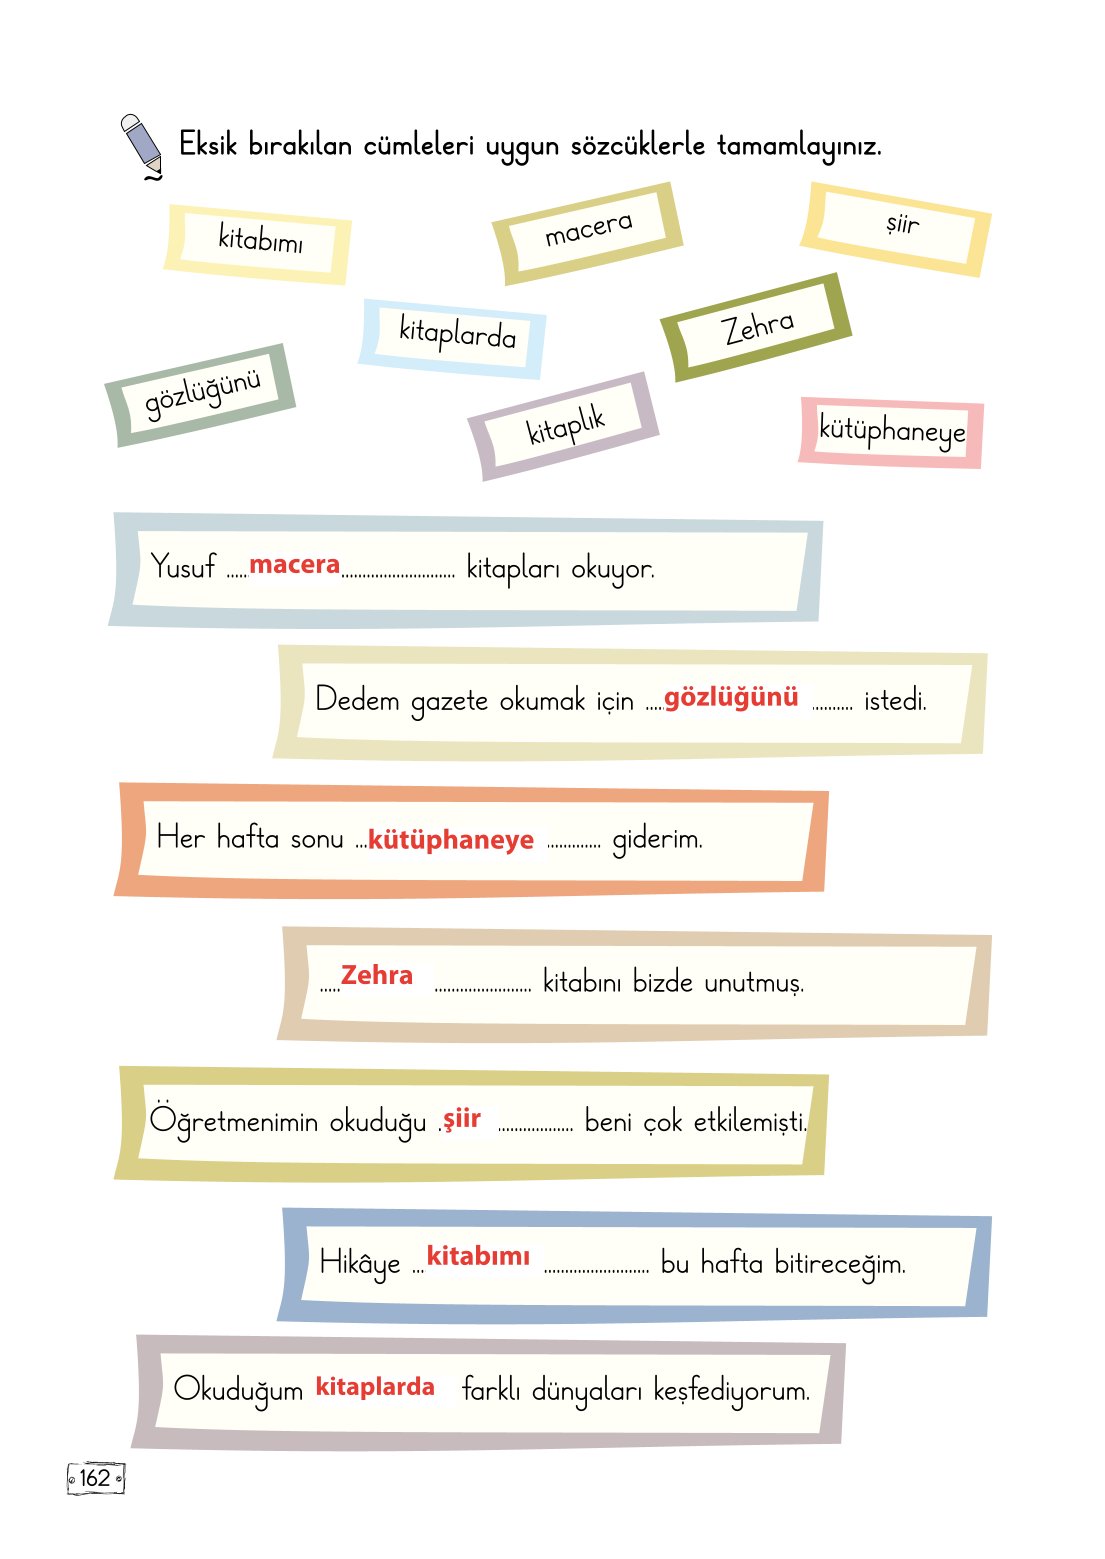 Eksik bırakılan cümleleri uygun sözcüklerle tamamlayınız.
kitabımı
macera
şiir
kitaplarda
Zehra
gözlüğünü
kitaplık
kütüphaneye
Yusuf .....macera........................... kitapları okuyor.
Dedem gazete okumak için ....gözlüğünü .......... istedi.
Her hafta sonu ...kütüphaneye ............. giderim.
.....Zehra ....................... kitabını bizde unutmuş.
Öğretmenimin okuduğu .şiir .................. beni çok etkilemişti.
Hikâye ...kitabımı ......................... bu hafta bitireceğim.
Okuduğum kitaplarda farklı dünyaları keşfediyorum.
162